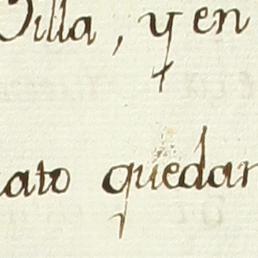 Villa, y en
ato quedar